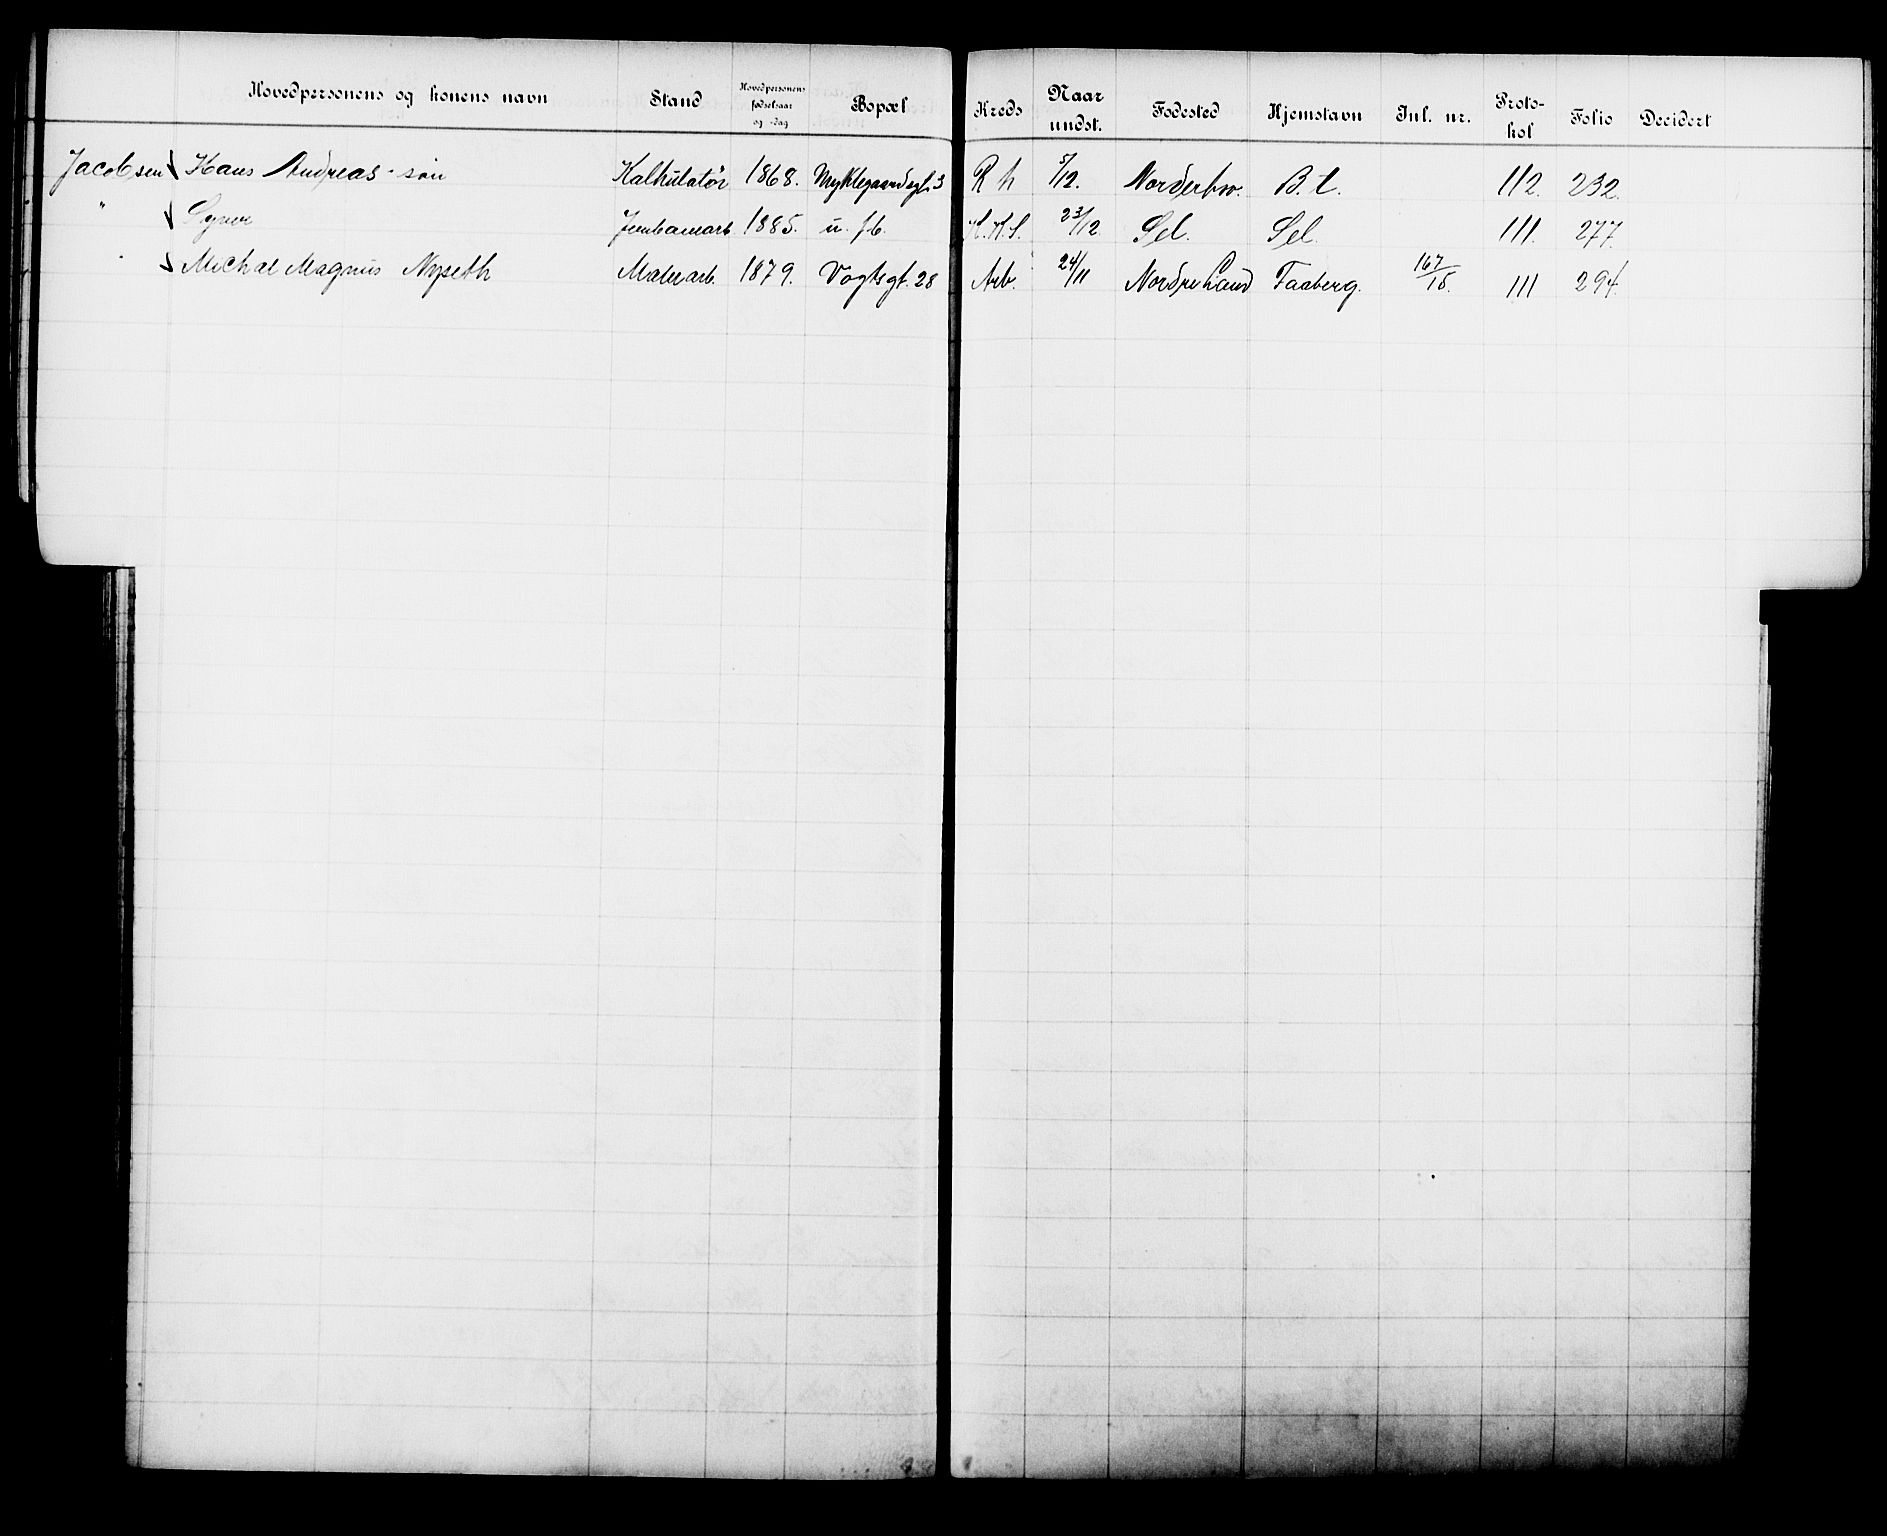 Hovedpersonens og konens navn Stand Hovedpersonens fødselsaar og -dag Bopæl Kreds Naar undst. Fødested Hjemstavn Inl. nr. Protokol Folio Decidert
Jacobsen Hans Andreas - søn Kalkulatør 1868. Myklegaardsgt. 3 R h 5/12. Norderhov. B. t. 112. 232.
" Syver Jernbanearb. 1885. u. fb. K.K.S. 23/12 Sel. Sel. 111. 277.
" Michal Magnus Nyseth Malerarb. 1879. Vogtsgt. 28 Arb. 24/11 Nordre Land Faaberg. 167/18. 111 294.